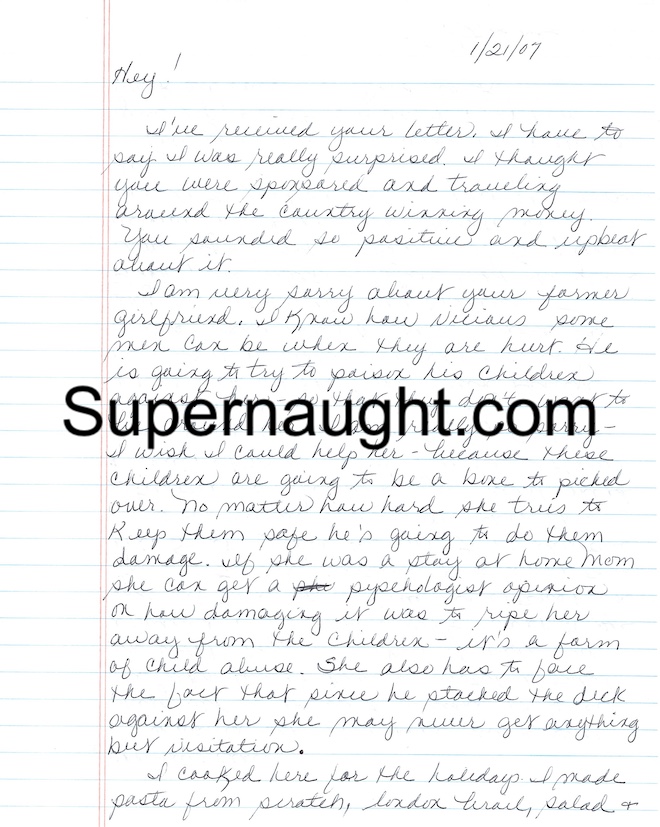 1/21/07
Hey!
I've received your letter. I have to
say I was really surprised. I thought
you were sponsared and traveling
around the country winning money.
You sounded so positive and upbeat
about it.
I am very sorry about your former
girlfriend. I know how vicious some
men can be when they are hurt. He
is going to try to poison his children
against her - so that they don't want to
Supernaught.com
be around her. I am really so sorry -
I wish I could help her - because these
children are going to be a bone to picked
over. No matter how hard she tries to
keep them safe he's going to do them
damage. If she was a stay at home Mom
she can get a psychologist opinion
on how damaging it was to ripe her
away from the children - it's a form
of child abuse. She also has to face
the fact that since he stacked the deck
against her she may never get anything
but visitation.
I cooked here for the holidays. I made
pasta from scratch, london broil, salad +